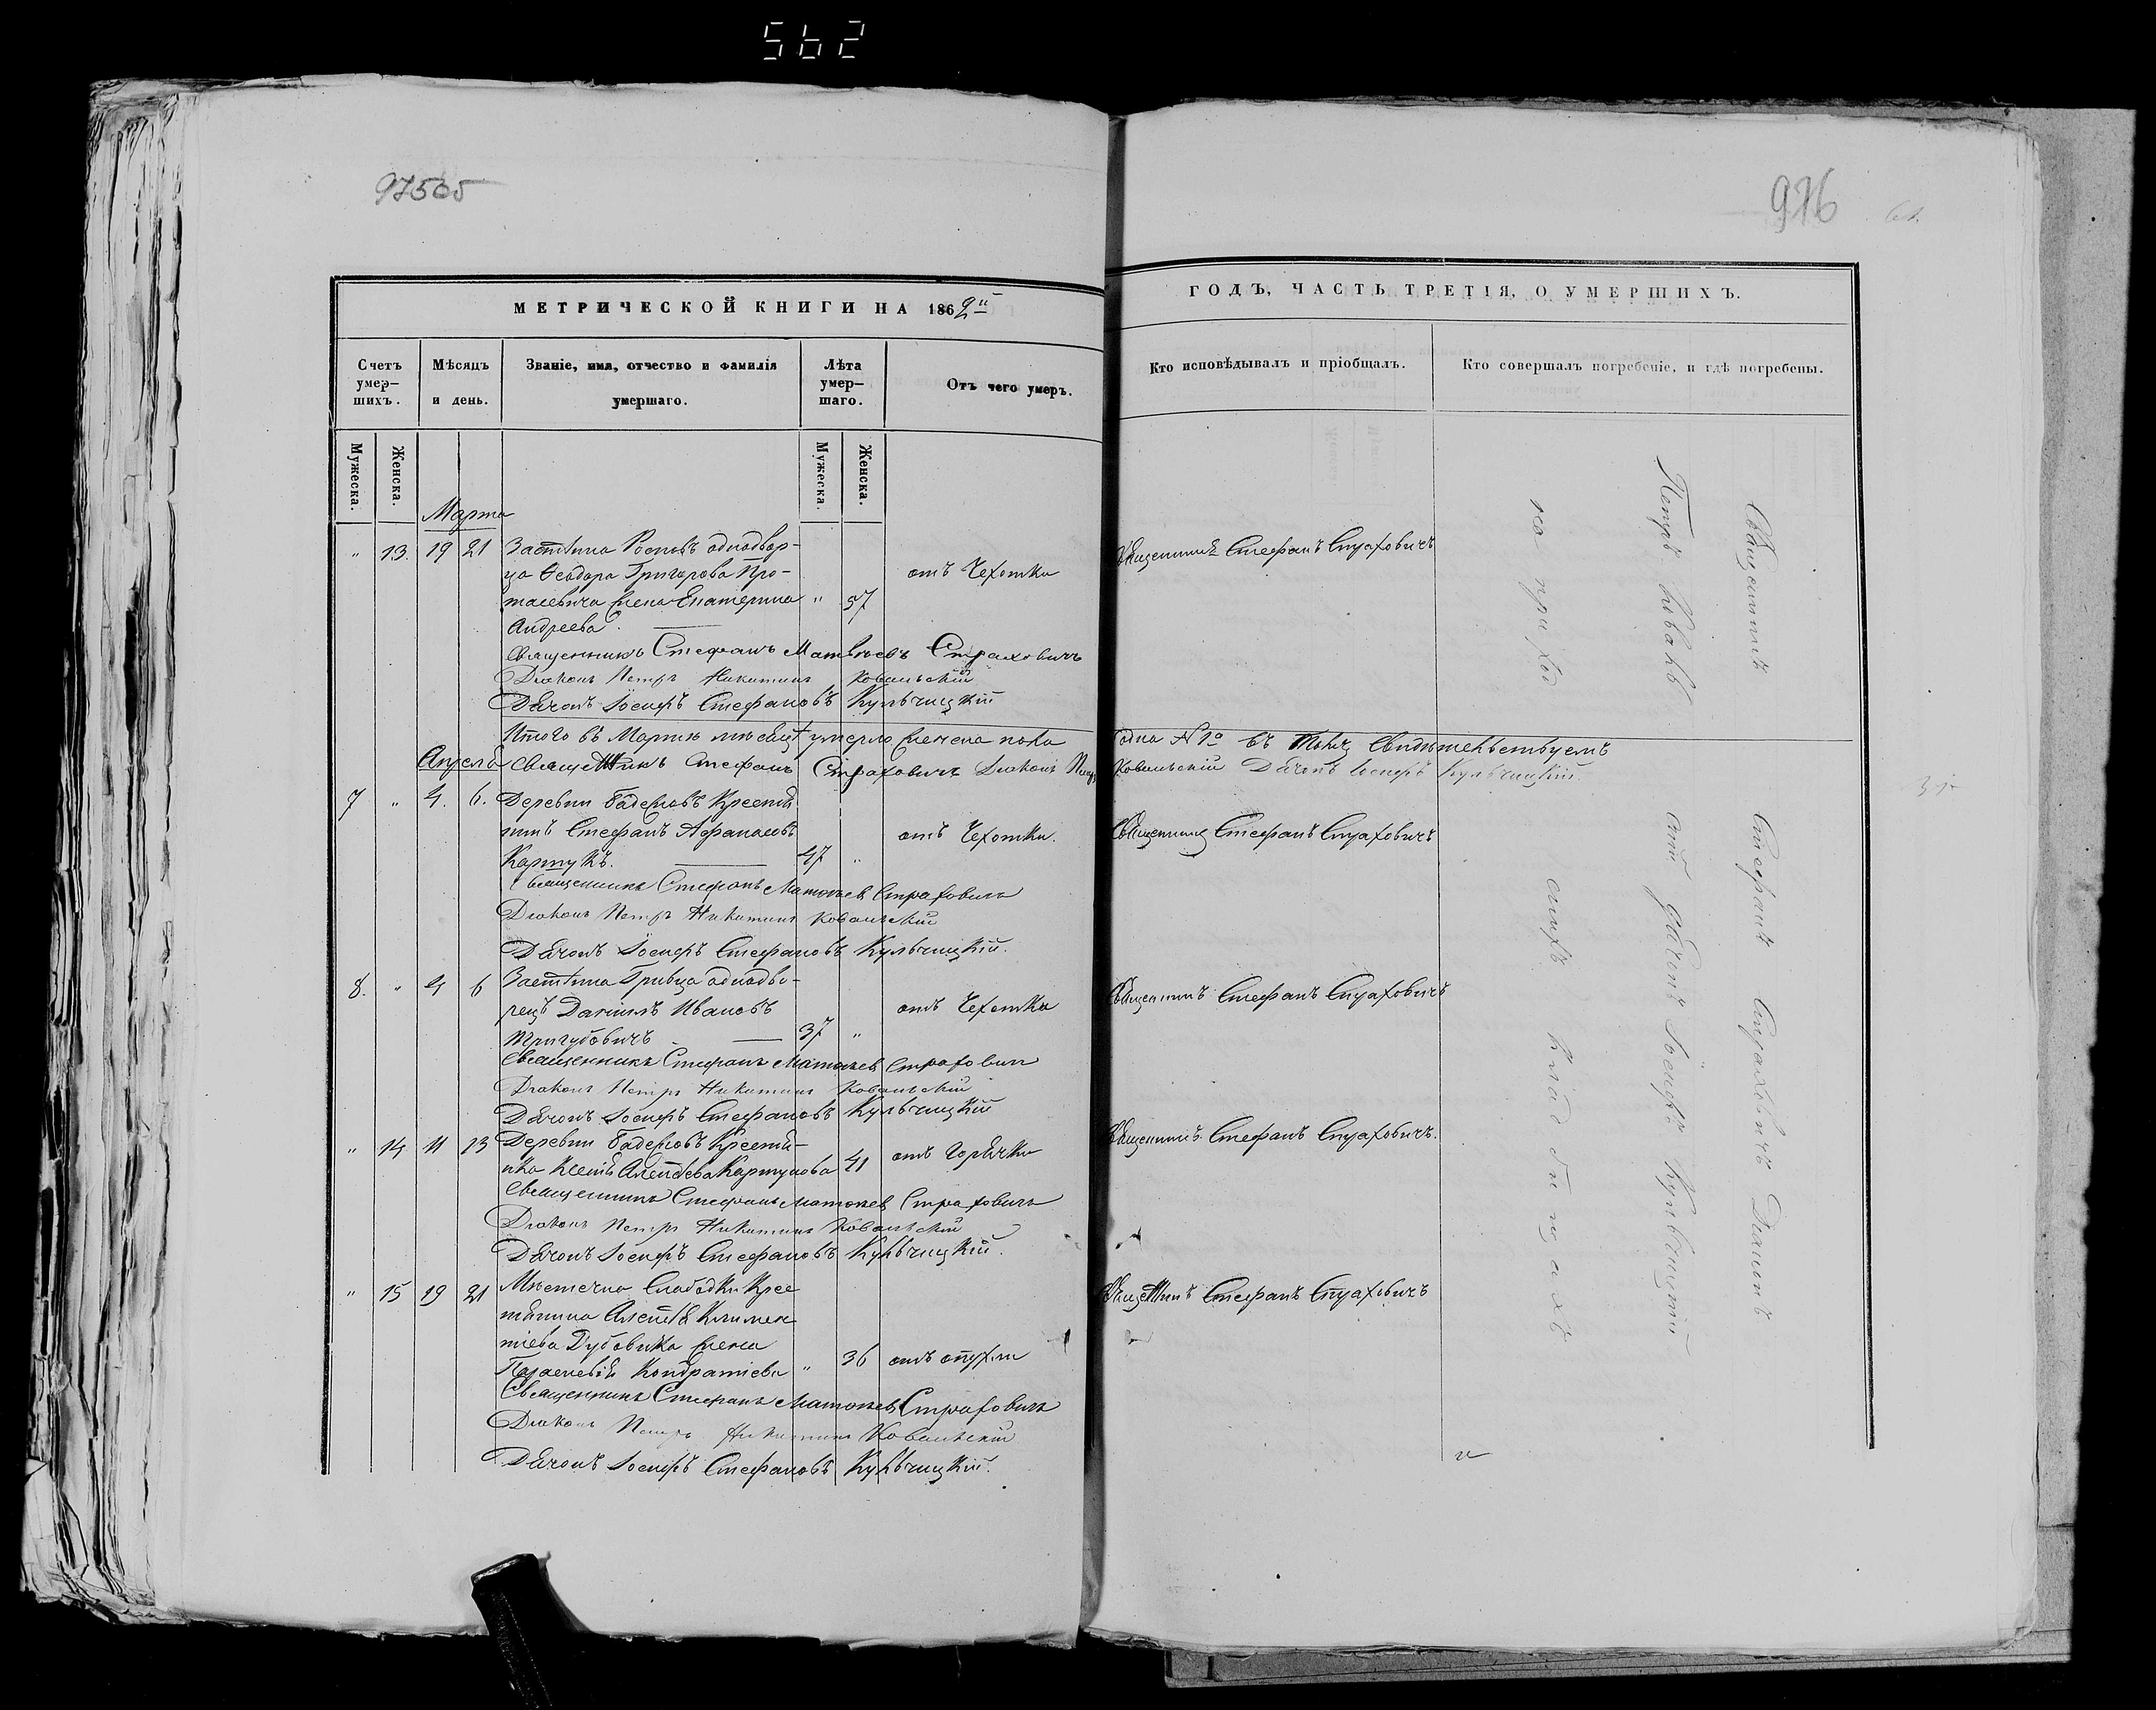 562
97505
976
МЕТРИЧЕСКОЙ КНИГИ НА 1862й
ГОДЪ, ЧАСТЬ ТРЕТІЯ, О УМЕРШИХЪ.
Счетъ умер-шихъ.
Мѣсяцъ и день.
Званіе, имя, отчество и фамилія умершаго.
Лѣта умер-шаго.
Отъ чего умеръ.
Кто исповѣдывалъ и пріобщалъ.
Кто совершалъ погребеніе, и гдѣ погребены.
Мужеска.
Женска.
Мужеска.
Женска.
Марта
" 13. 19 21 Застѣнка однодвор-
ца Ѳеодора Григорова Про- отъ Чехотки Священникъ Стефанъ Страховичъ
тасевича жена Екатерина " 57
Андреева.
Священникъ Стефанъ Матвѣевъ Страховичъ
Діаконъ Петръ Никитинъ Ковальскій
Дьячокъ Іосифъ Стефановъ Кульчицкій
Итого въ Мартѣ мѣсяцѣ умерло женска пола одна № 1о въ томъ свидѣтельствуемъ
Апреля Священникъ Стефанъ Страховичъ Діаконъ Петръ Ковальскій Дьячокъ Іосифъ Кульчицкій.
7 " 4. 6. Деревни Крестья
нинъ Стефанъ Афанасьевъ отъ Чехотки. Священникъ Стефанъ Страховичъ
Картукъ. 47 "
Священникъ Стефанъ Матвѣев Страховичъ
Діаконъ Петръ Никитинъ Ковальскій
Дьячокъ Іосифъ Стефановъ Кульчицкій.
8. " 4 6 Застѣнка Гривца однодво-
рецъ Даніилъ Ивановъ отъ Чехотки Священникъ Стефанъ Страховичъ
Тригубовичъ 37 "
Священникъ Стефанъ Матвѣев Страховичъ
Діаконъ Петръ Никитинъ Ковальскій
Дьячокъ Іосифъ Стефановъ Кульчицкій
" 14 11 13 Деревни Крестья-
нка Алексѣева Картукова 41 отъ Горячки Священникъ Стефанъ Страховичъ.
Священникъ Стефанъ Матвѣев Страховичъ
Діаконъ Петръ Никитинъ Ковальскій
Дьячокъ Іосифъ Стефановъ Кульчицкій.
" 15 19 21 Мѣстечка Слободки Крес
тьянина Алексѣя Климен Священникъ Стефанъ Страховичъ
тіева Дубовика жена
Параскевія Кондратіева " 36 отъ опухли
Священникъ Стефанъ Матвѣев Страховичъ
Діаконъ Петръ Никитинъ Ковальскій
Дьячокъ Іосифъ Стефановъ Кульчицкій.
Священникъ Стефанъ Страховичъ Діаконъ
Петръ Дьячокъ Іосифъ Кульчицкій
на приход кладбищахъ